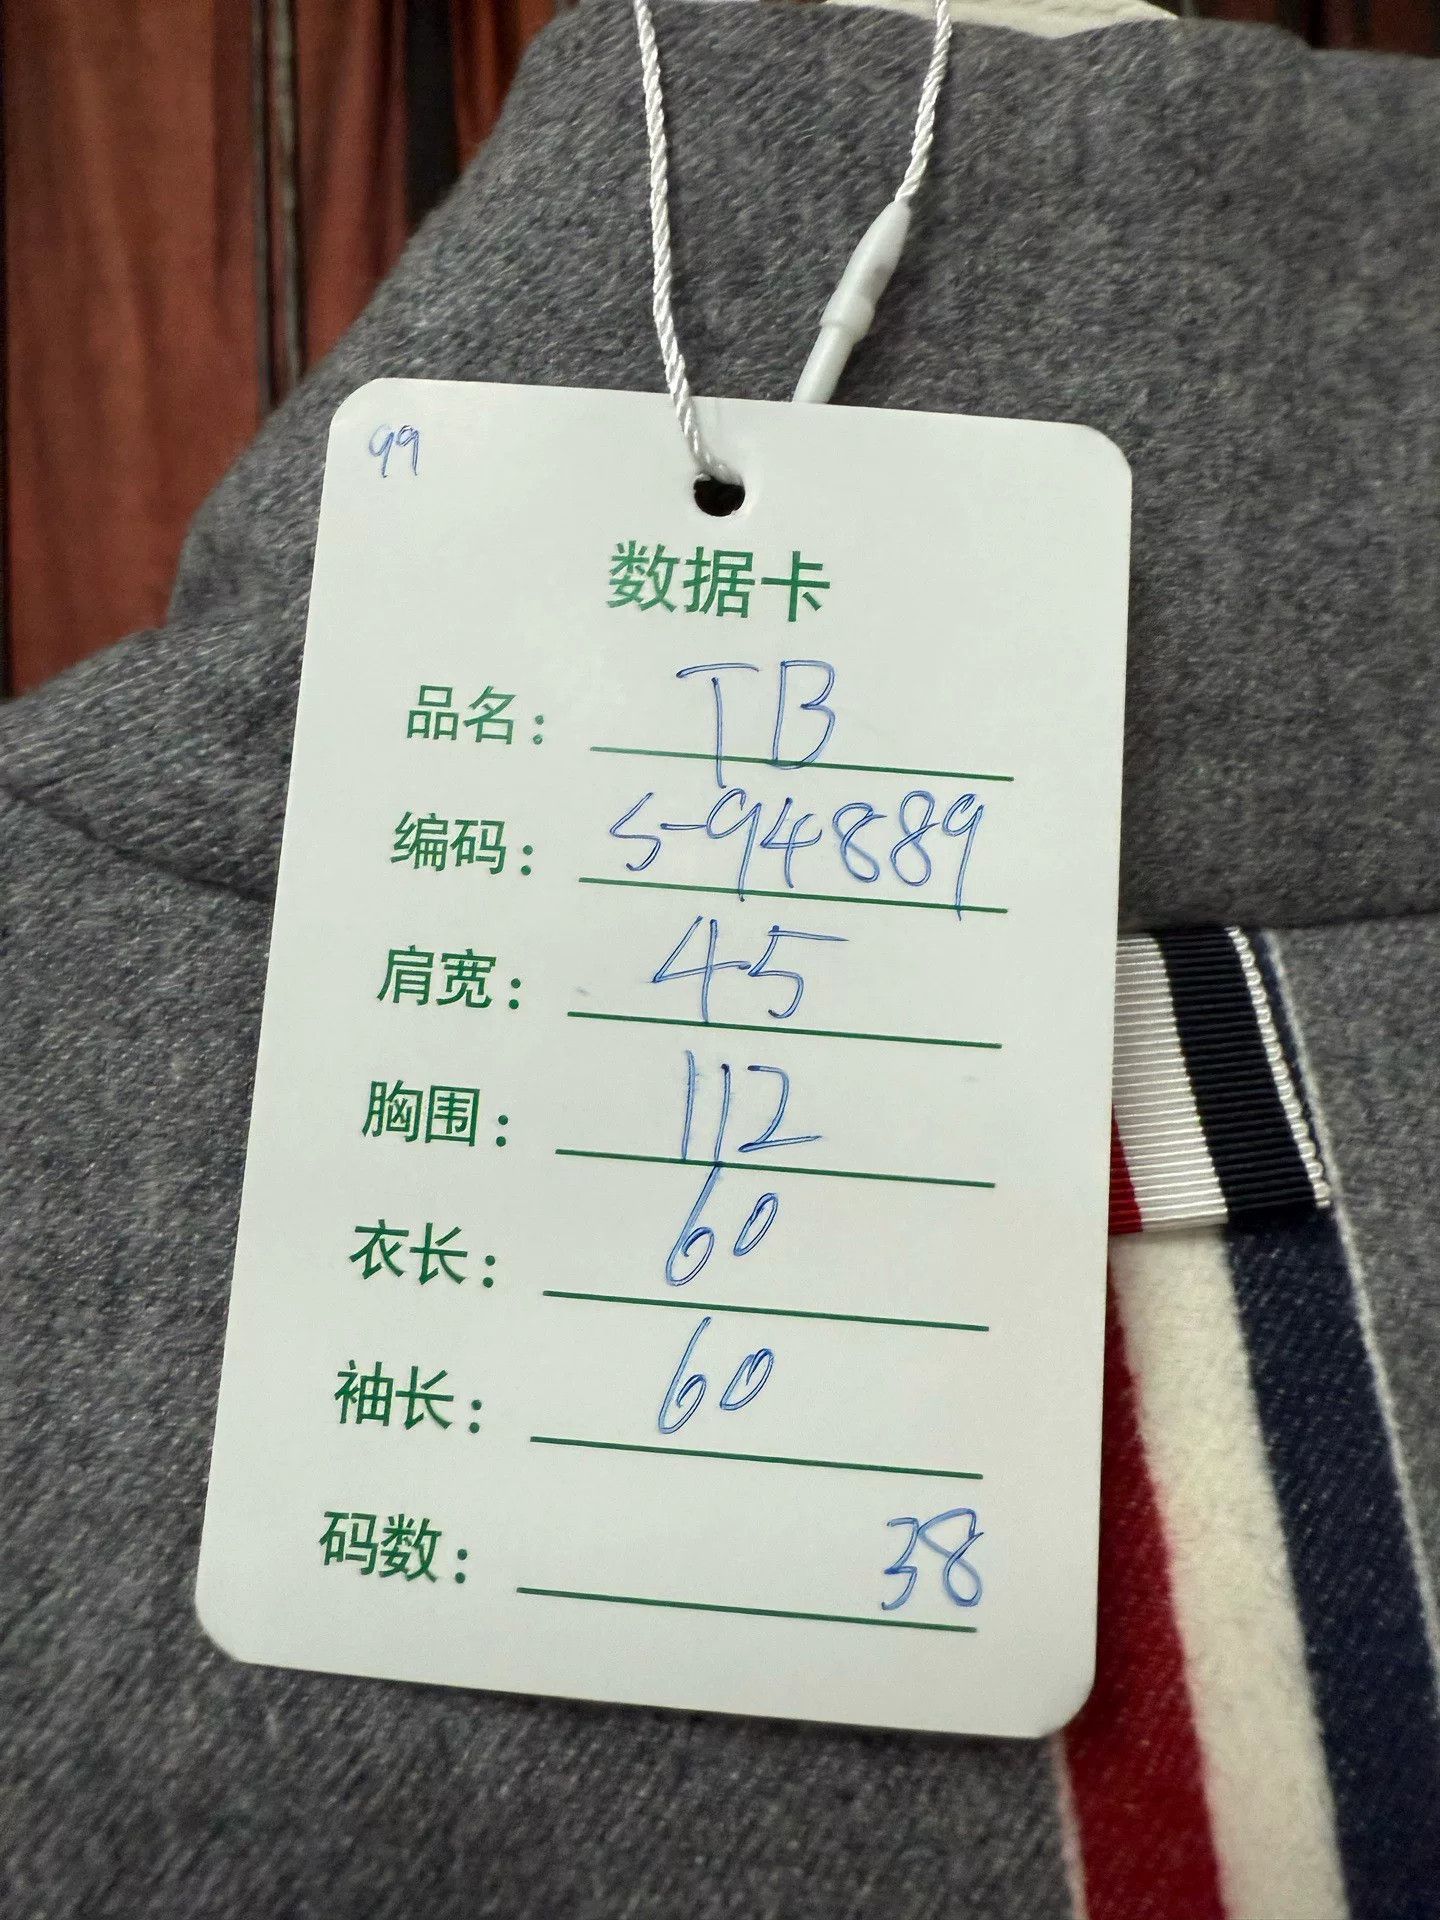 99
数据卡
品名： TB
编码： S-94889
肩宽： 45
胸围： 112
衣长： 60
袖长： 60
码数： 38